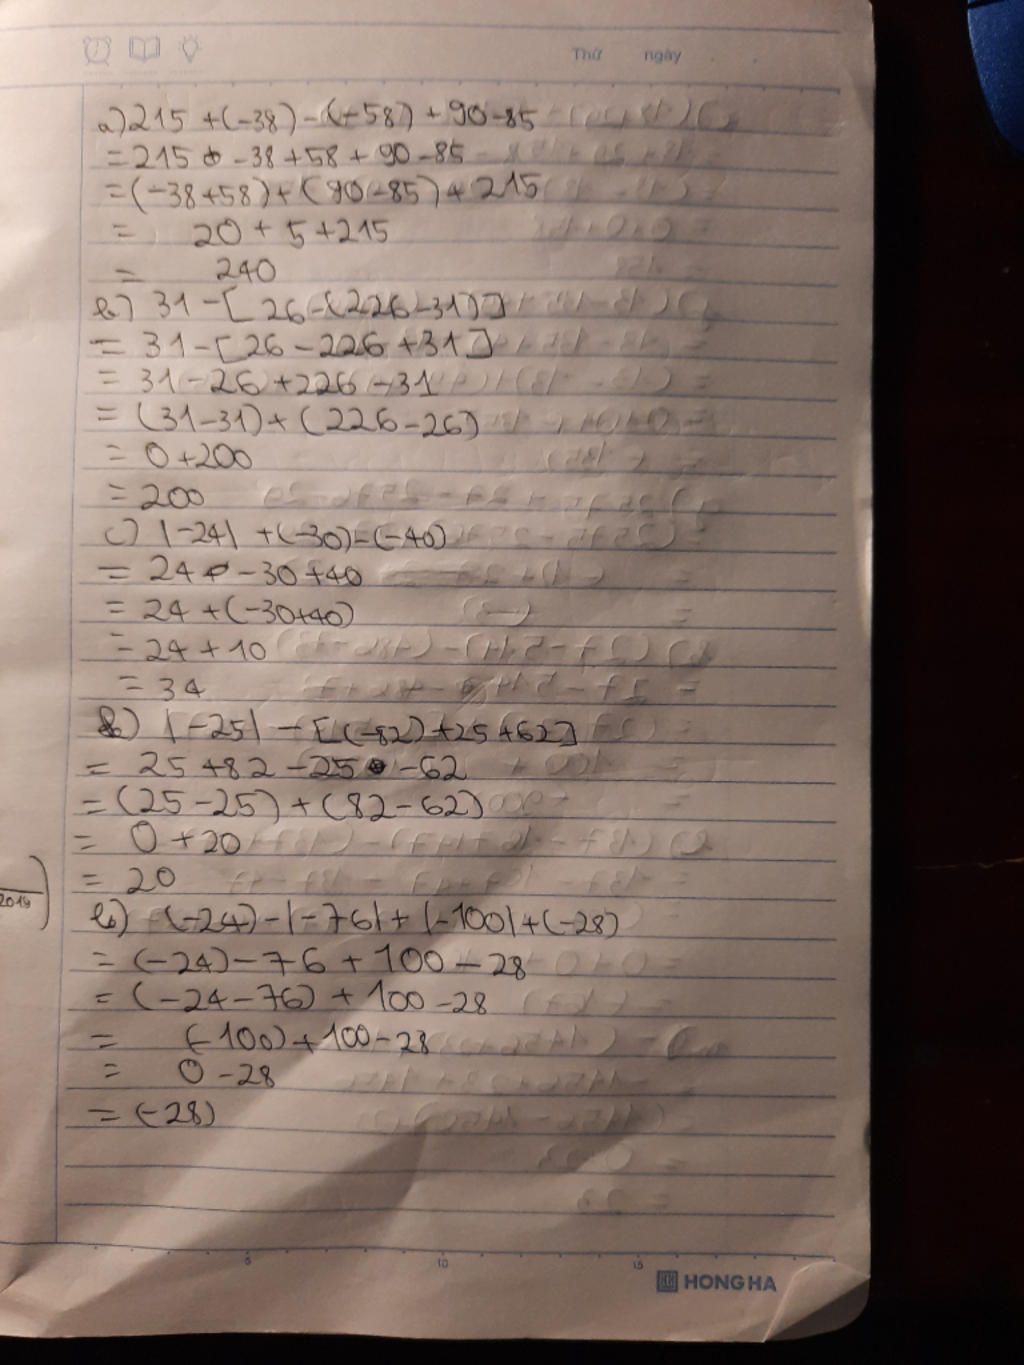 Thứ ngày
a) 215 + (-38) - (-58) + 90 - 85
= 215 - 38 + 58 + 90 - 85
= (-38 + 58) + (90 - 85) + 215
= 20 + 5 + 215
= 240
b) 31 - [26 - (226 - 31)]
= 31 - [26 - 226 + 31]
= 31 - 26 + 226 - 31
= (31 - 31) + (226 - 26)
= 0 + 200
= 200
c) |-24| + (-30) - (-40)
= 24 - 30 + 40
= 24 + (-30 + 40)
= 24 + 10
= 34
|-25| - [(-82) + 25 + 62]
= 25 + 82 - 25 - 62
= (25 - 25) + (82 - 62)
= 0 + 20
= 20
2019
b) (-24) - |-76| + |-100| + (-28)
= (-24) - 76 + 100 - 28
= (-24 - 76) + 100 - 28
= (-100) + 100 - 28
= 0 - 28
= (-28)
5 10 15
HONG HA